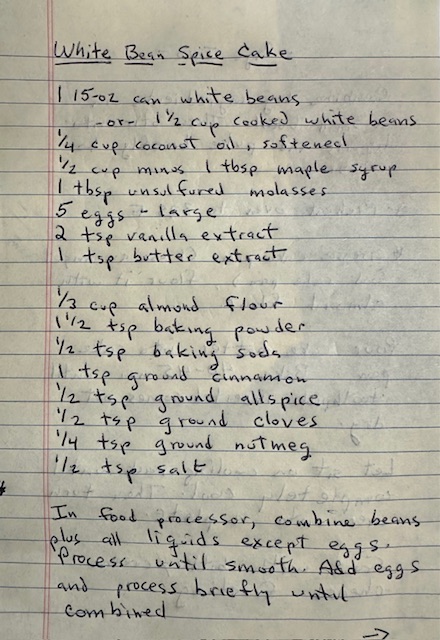 White Bean Spice Cake
1 15-oz can white beans
-or- 1 1/2 cup cooked white beans
1/4 cup coconut oil, softened
1/2 cup minus 1 tbsp maple syrup
1 tbsp unsulfured molasses
5 eggs - large
2 tsp vanilla extract
1 tsp butter extract
1/3 cup almond flour
1 1/2 tsp baking powder
1/2 tsp baking soda
1 tsp ground cinnamon
1/2 tsp ground allspice
1/2 tsp ground cloves
1/4 tsp ground nutmeg
1/2 tsp salt
In food processor, combine beans
plus all liquids except eggs.
Process until smooth. Add eggs
and process briefly until
combined
→